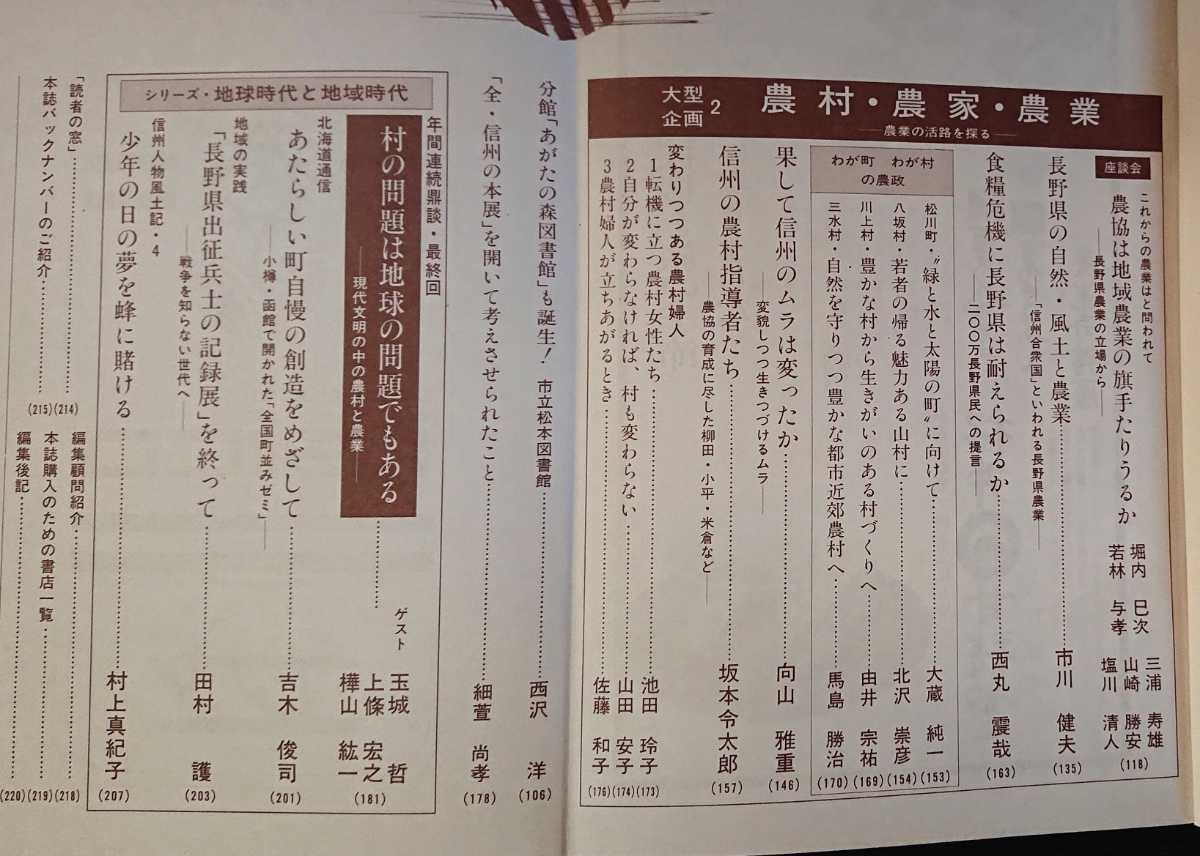 大型企画2 農村・農家・農業
―農業の活路を探る―
座談会
これからの農業はと問われて
農協は地域農業の旗手たりうるか
―長野県農業の立場から―
三浦 寿雄
堀内 巳次 山崎 勝安
若林 与孝 塩川 清人
(118)
長野県の自然・風土と農業………市川 健夫 (135)
―「信州合衆国」といわれる長野県農業―
食糧危機に長野県は耐えられるか………西丸 震哉 (163)
―二〇〇万長野県民への提言―
わが町 わが村の農政
松川町・“緑と水と太陽の町”に向けて………大蔵 純一 (153)
八坂村・若者の帰る魅力ある山村に………北沢 崇彦 (154)
川上村・豊かな村から生きがいのある村づくりへ………由井 宗祐 (169)
三水村・自然を守りつつ豊かな都市近郊農村へ………馬島 勝治 (170)
果して信州のムラは変ったか………向山 雅重 (146)
―変貌しつつ生きつづけるムラ―
信州の農村指導者たち………坂本令太郎 (157)
農協の育成に尽した柳田・小平・米倉など―
変わりつつある農村婦人
1転機に立つ農村女性たち………池田 玲子 (173)
2自分が変わらなければ、村も変わらない………山田 安子 (174)
3農村婦人が立ちあがるとき………佐藤 和子 (176)
分館「あがたの森図書館」も誕生! 市立松本図書館………西沢 洋 (106)
「全・信州の本展」を開いて考えさせられたこと………細萱 尚孝 (178)
シリーズ・地球時代と地域時代
年間連続鼎談・最終回
村の問題は地球の問題でもある………
―現代文明の中の農村と農業―
ゲスト 玉城 哲
上條 宏之
樺山 紘一
(181)
北海道通信
あたらしい町自慢の創造をめざして………吉木 俊司 (201)
―小樽・函館で開かれた「全国町並みゼミ」―
地域の実践
「長野県出征兵士の記録展」を終って………田村 護 (203)
―戦争を知らない世代へ―
信州人物風土記・4
少年の日の夢を蜂に賭ける………村上真紀子 (207)
「読者の窓」………(214)
本誌バックナンバーのご紹介………(215)
編集顧問紹介………(218)
本誌購入のための書店一覧………(219)
編集後記………(220)